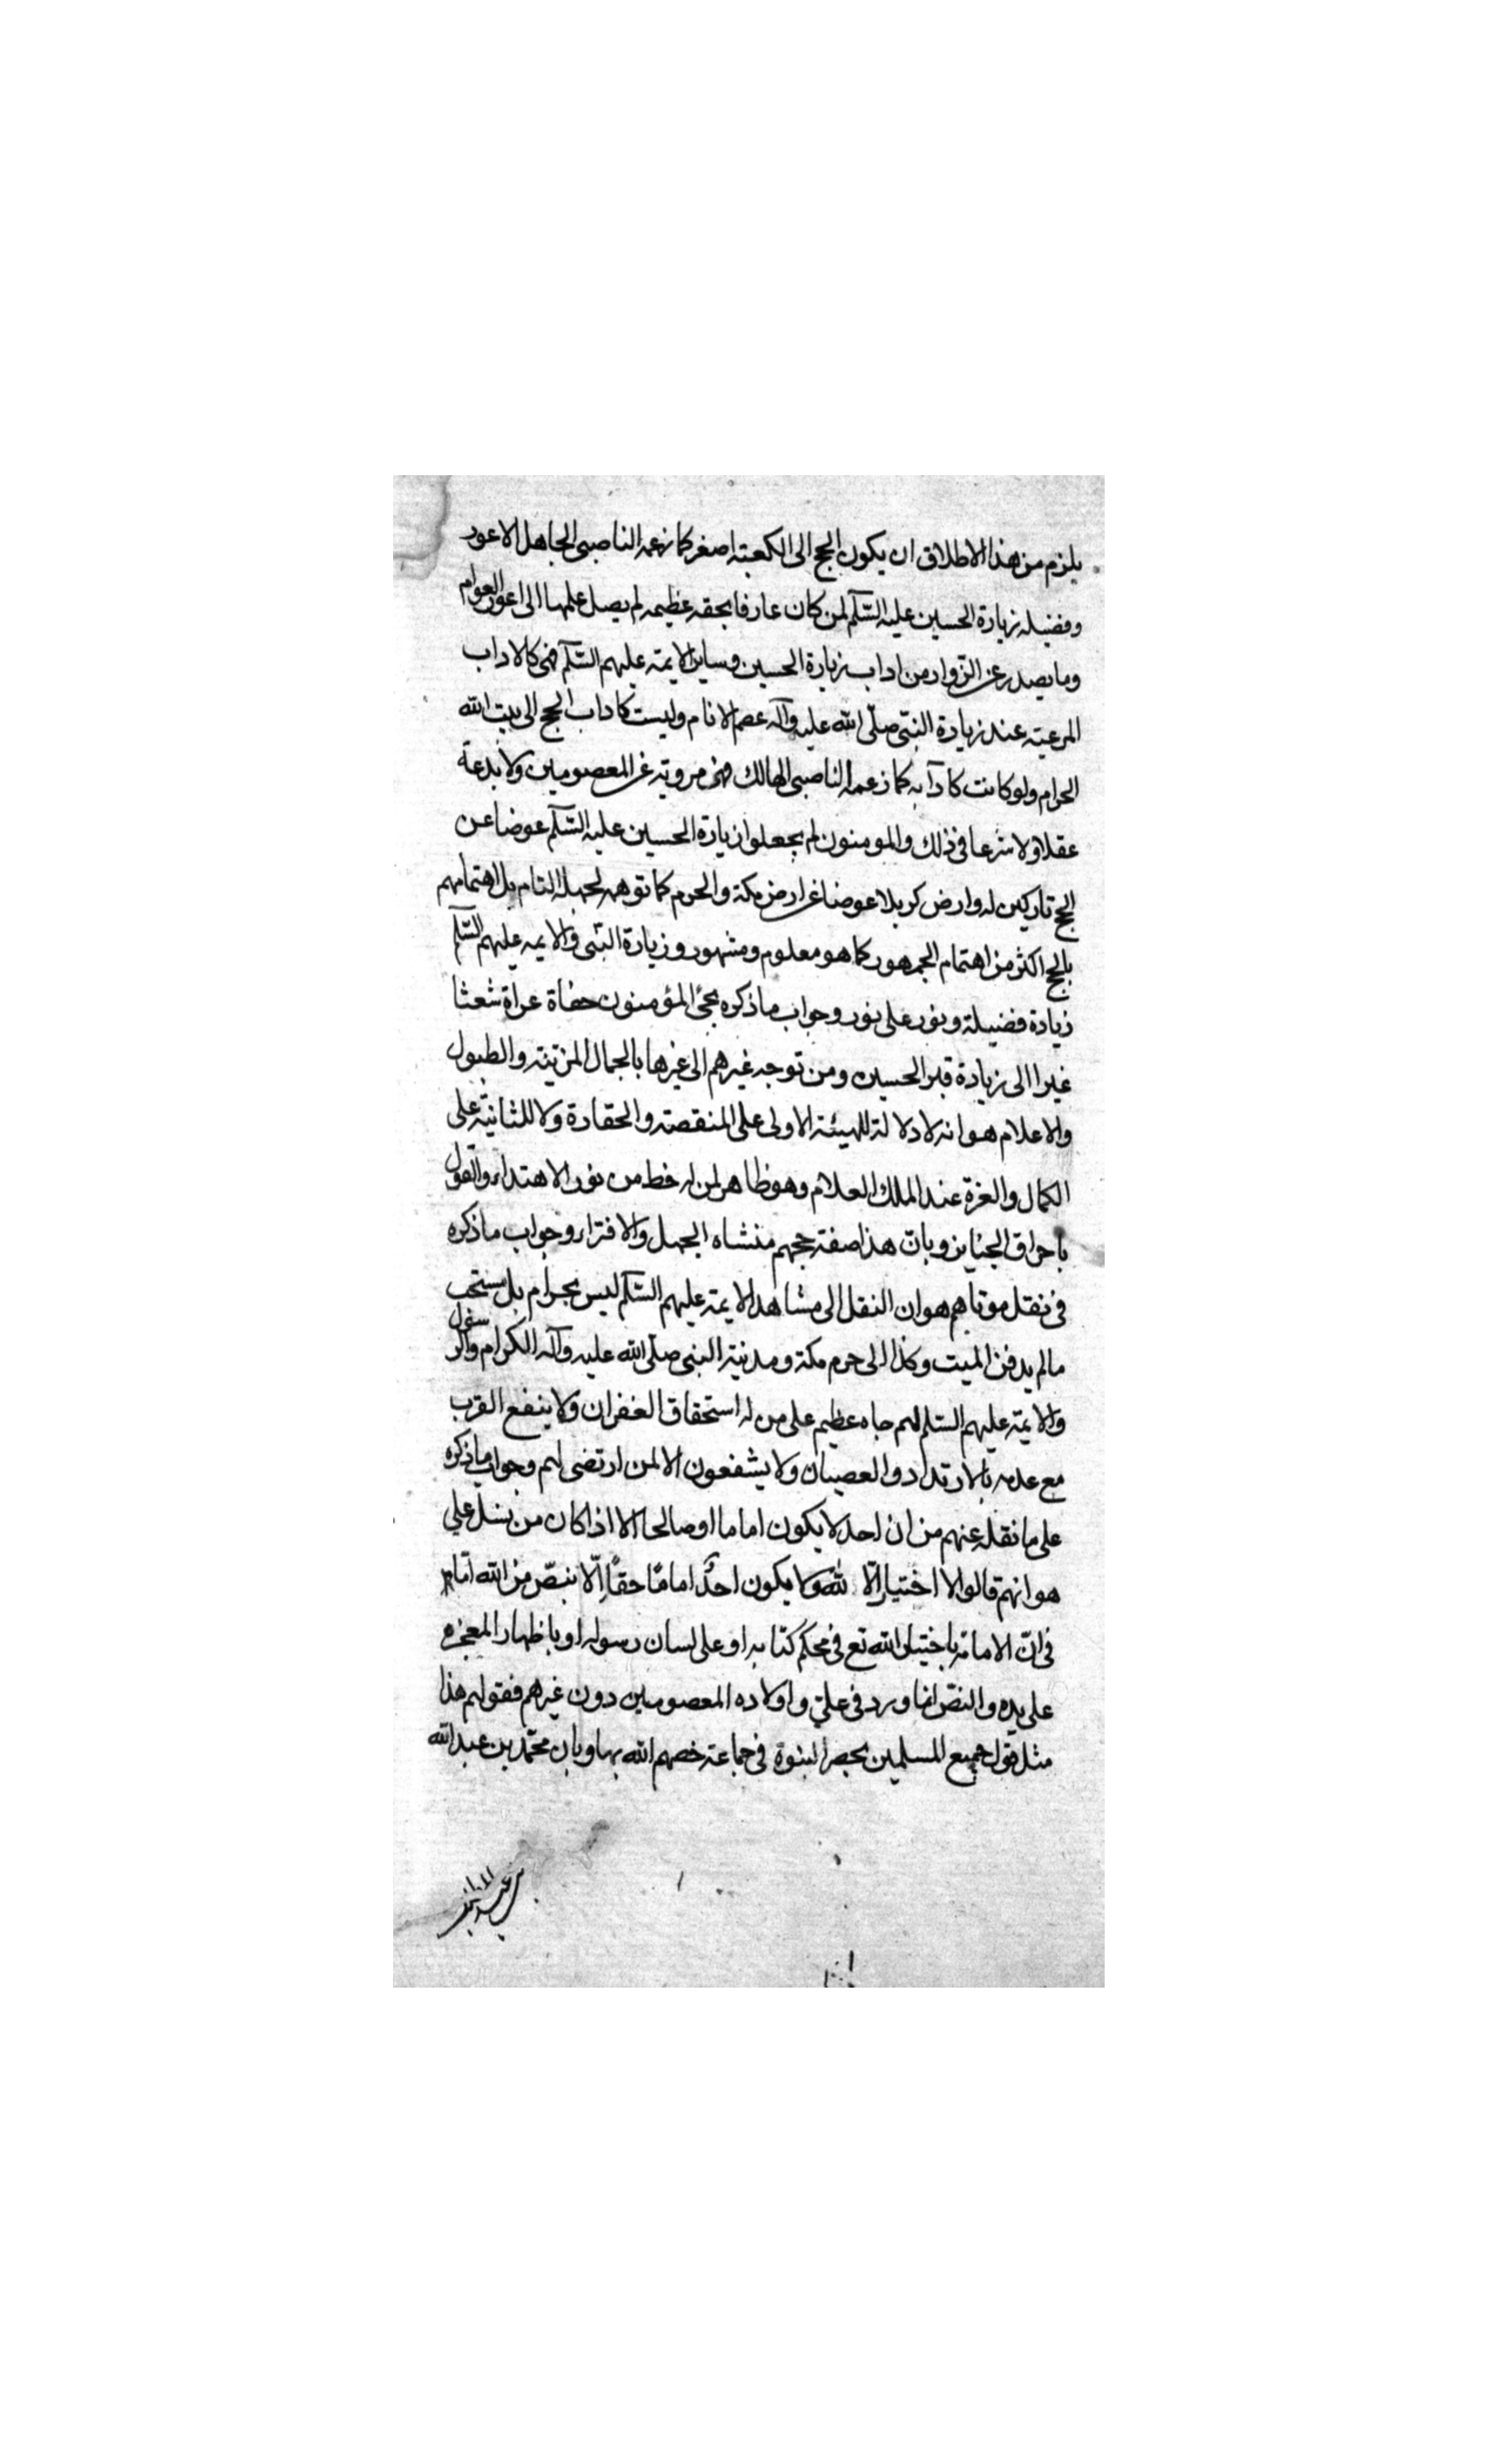 يلزم من هذا الاطلاق ان يكون الحج الى الكعبته اصغر كما زعمه الناصبى الجاهل الاعور
وفضيلة زيارة الحسين عليه السّلم لمن كان عارفا بحقه عظيمه لم يصل علمها الى اعور العوام
وما يصدر عن الزّوار من اداب زيارة الحسين وساير الايمته عليهم السّلم فهى كالاداب
المرعيته عند زيارة النبّى صلّى الله عليه وآله عصم الانام وليست كاداب الحج الى بيت الله
الحرام ولو كانت كآدابه كما زعمه الناصبى الهالك فهى مرويته عن المعصومين ولا بدعة
عقلا ولا شرعا فى ذلك والمومنون لم يجعلوا زيارة الحسين عليه السّلم عوضا عن
الحج تاركين له وارض كربلا عوضا عن ارض مكة والحرم كما توهمه لجهله التام بل اهتمامهم
بالحج اكثر من اهتمام الجمهور كما هو معلوم ومشهور وزيارة النبّى والايمه عليهم السّلم
زيادة فضيلة ونور على نور وجواب ما ذكره بمجئ المؤمنون حفاة عراة شعثا
غبرا الى زيارة قبر الحسين ومن توجه غيرهم الى غيرها بالجمال المزتينته والطبول
والاعلام هو انه لا دلالة للهيئة الاولى على المنقصته والحقادة ولا للثانيتة على
الكمال والعزة عند الملك العلام وهو ظاهر لمن له خط من نور الاهتداء والقول
باحراق الجنايز وبانّ هذا صفته حجهم منشاه الجهل والافتراء وجواب ما ذكره
فى نقل موتاهم هو ان النقل الى مشاهد الايمته عليهم السّلم ليس بحرام بل مستحب
ما لم يدفن الميت وكذا الى حرم مكة ومدنية النبى صلّى الله عليه وآله الكرام والرسول
والايمّته عليهم السلم لهم جاه عظيم على من له استحقاق الغفران ولا ينفع القرب
مع عدمه بالارتداد والعصيان ولا يشفعون الا لمن ارتضى لهم وجواب ما ذكره
على ما نقله عنهم من ان احد لا يكون اماما او صالحا الا اذا كان من نسل علي
هو انهم قالوا لا اختيار الّا لله ولا يكون احدٌ امامًا حقًا الّا بنصّ من الله امّا
فى انّ الامامته باختيار الله تع فى محكم كتابه او على لسان رسوله او باظهار المعجزه
على يده والنصّ انما ورد فى علىّ واولاده المعصومين دون غيرهم فقولهم هذا
مثل قول جميع المسلمين بحصر النبوة فى جماعته خصهم الله بها وبان محمّد بن عبد الله